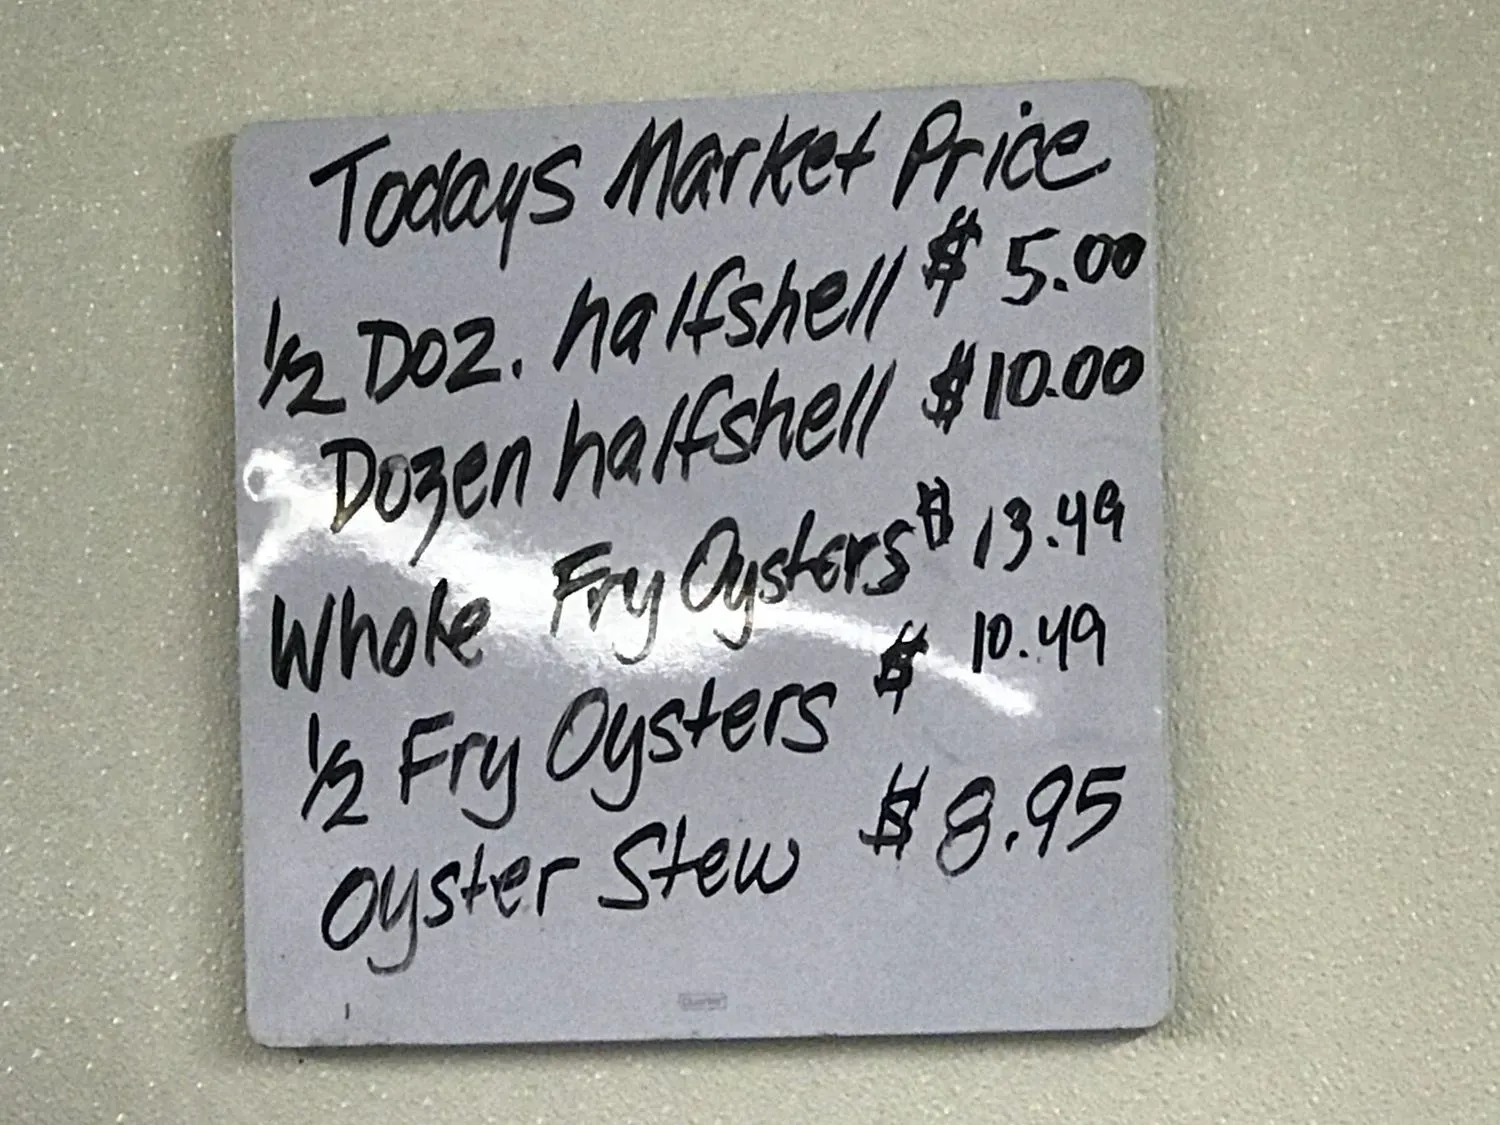 Todays Market Price
1/2 Doz. halfshell $ 5.00
Dozen halfshell $10.00
Whole Fry Oysters $ 13.49
1/2 Fry Oysters $ 10.49
Oyster Stew $8.95
Quartet